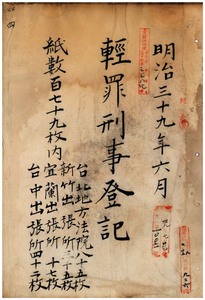 明治三十九年六月
輕罪刑事登記
紙數百七十九枚內
台北地方法院八十五枚
新竹出張所三十五枚
宜蘭出張所十七枚
台中出張所四十二枚